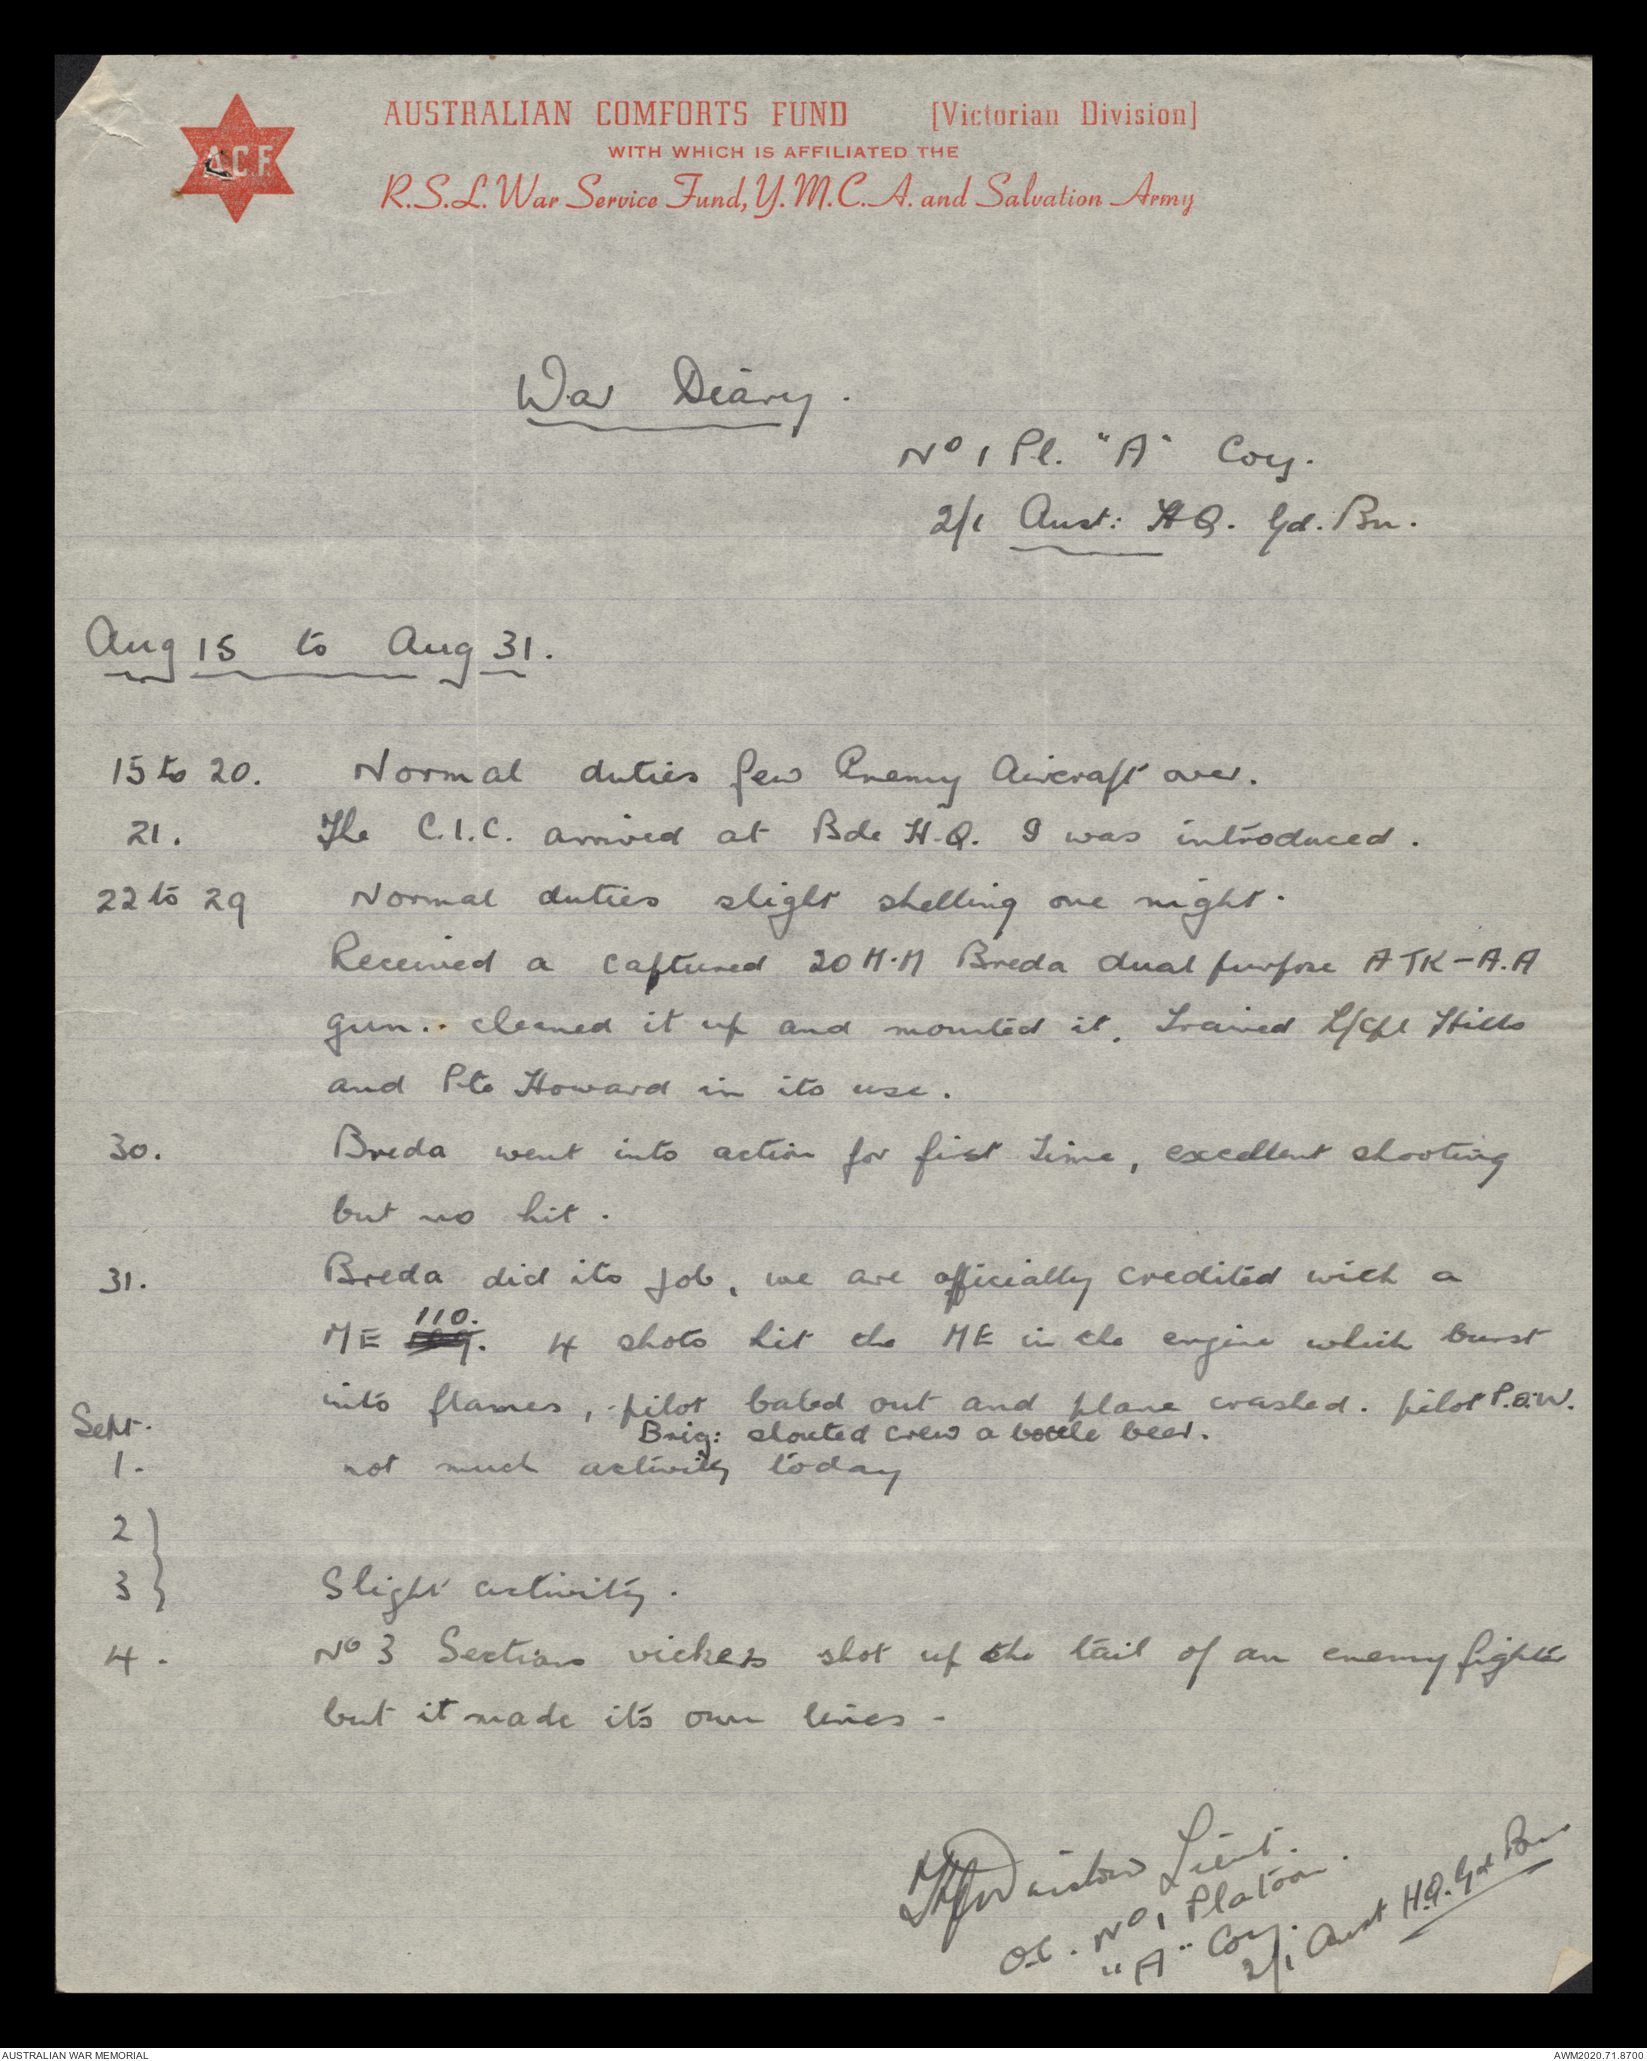 ACF
AUSTRALIAN COMFORTS FUND [Victorian Division]
WITH WHICH IS AFFILIATED THE
R.S.L. War Service Fund, Y.M.C.A. and Salvation Army
War Diary.
No 1 Pl. "A" Coy.
2/1 Aust: HQ. Gd. Bn.
Aug 15 to Aug 31.
15 to 20. Normal duties few Enemy Aircraft over.
21. The C.I.C. arrived at Bde H.Q. I was introduced.
22 to 29 Normal duties slight shelling one night.
Received a captured 20 M.M Breda dual purpose A TK-A.A
gun.. cleaned it up and mounted it. Trained L/Cpl Hills
and Pte Howard in its use.
30. Breda went into action for first time, excellent shooting
but no hit.
31. Breda did its job, we are officially credited with a
110.
ME 109. 4 shots hit the ME in the engine which burst
into flames, pilot baled out and plane crashed. pilot P.O.W.
Sept. Brig: shouted crew a bottle beer.
1. not much activity today
2
3 Slight activity.
4. No 3 Sections vickers shot up the tail of an enemy fighter
but it made it's own lines -
Lieut.
OC. No 1 Platoon.
"A" Coy.
2/1 Aust H.Q. Gd Bn
AUSTRALIAN WAR MEMORIAL AWM2020.71.8700